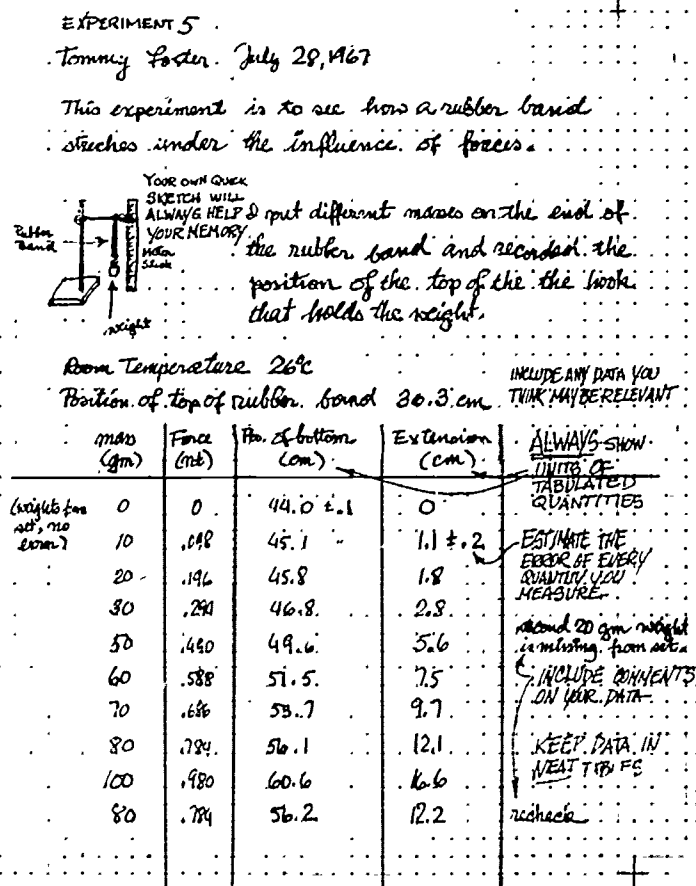 EXPERIMENT 5
Tommy Foster. July 28, 1967
This experiment is to see how a rubber band
streches under the influence of forces.
YOUR OWN QUICK
SKETCH WILL
ALWAYS HELP
YOUR MEMORY
Rubber
Band
Meter
Stick
weight
I put different masses on the end of
the rubber band and recorded the
position of the top of the the hook
that holds the weight.
Room Temperature 26°C
Position of top of rubber band 30.3 cm
INCLUDE ANY DATA YOU
THINK MAY BE RELEVANT
mass (gm) Force (nt) Pos. of bottom (cm) Extension (cm)
ALWAYS SHOW
UNITS OF
TABULATED
QUANTITIES
(weights from
set, no
error)
0 0 44.0 ± .1 0
10 .098 45.1 " 1.1 ± .2
ESTIMATE THE
ERROR OF EVERY
QUANTITY YOU
MEASURE
20 .196 45.8 1.8
30 .294 46.8 2.8
second 20 gm weight
is missing from set.
50 .490 49.6 5.6
60 .588 51.5 7.5
INCLUDE COMMENTS
ON YOUR DATA
70 .686 53.7 9.7
80 .784 56.1 12.1
KEEP DATA IN
NEAT TABLES
100 .980 60.6 16.6
80 .784 56.2 12.2 recheck